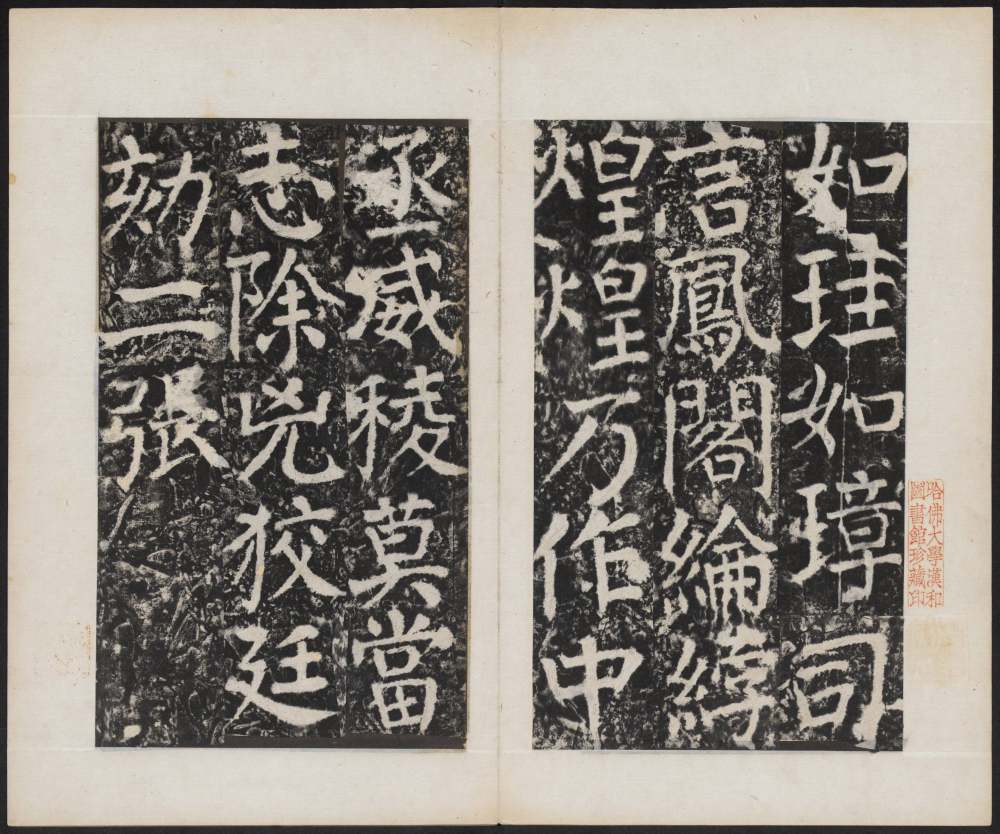 如珪如璋司
言鳳閣綸綍
煌煌乃作中
丞威稜莫當
志除兇狡廷
劾二張
哈佛大學漢和
圖書館珍藏印